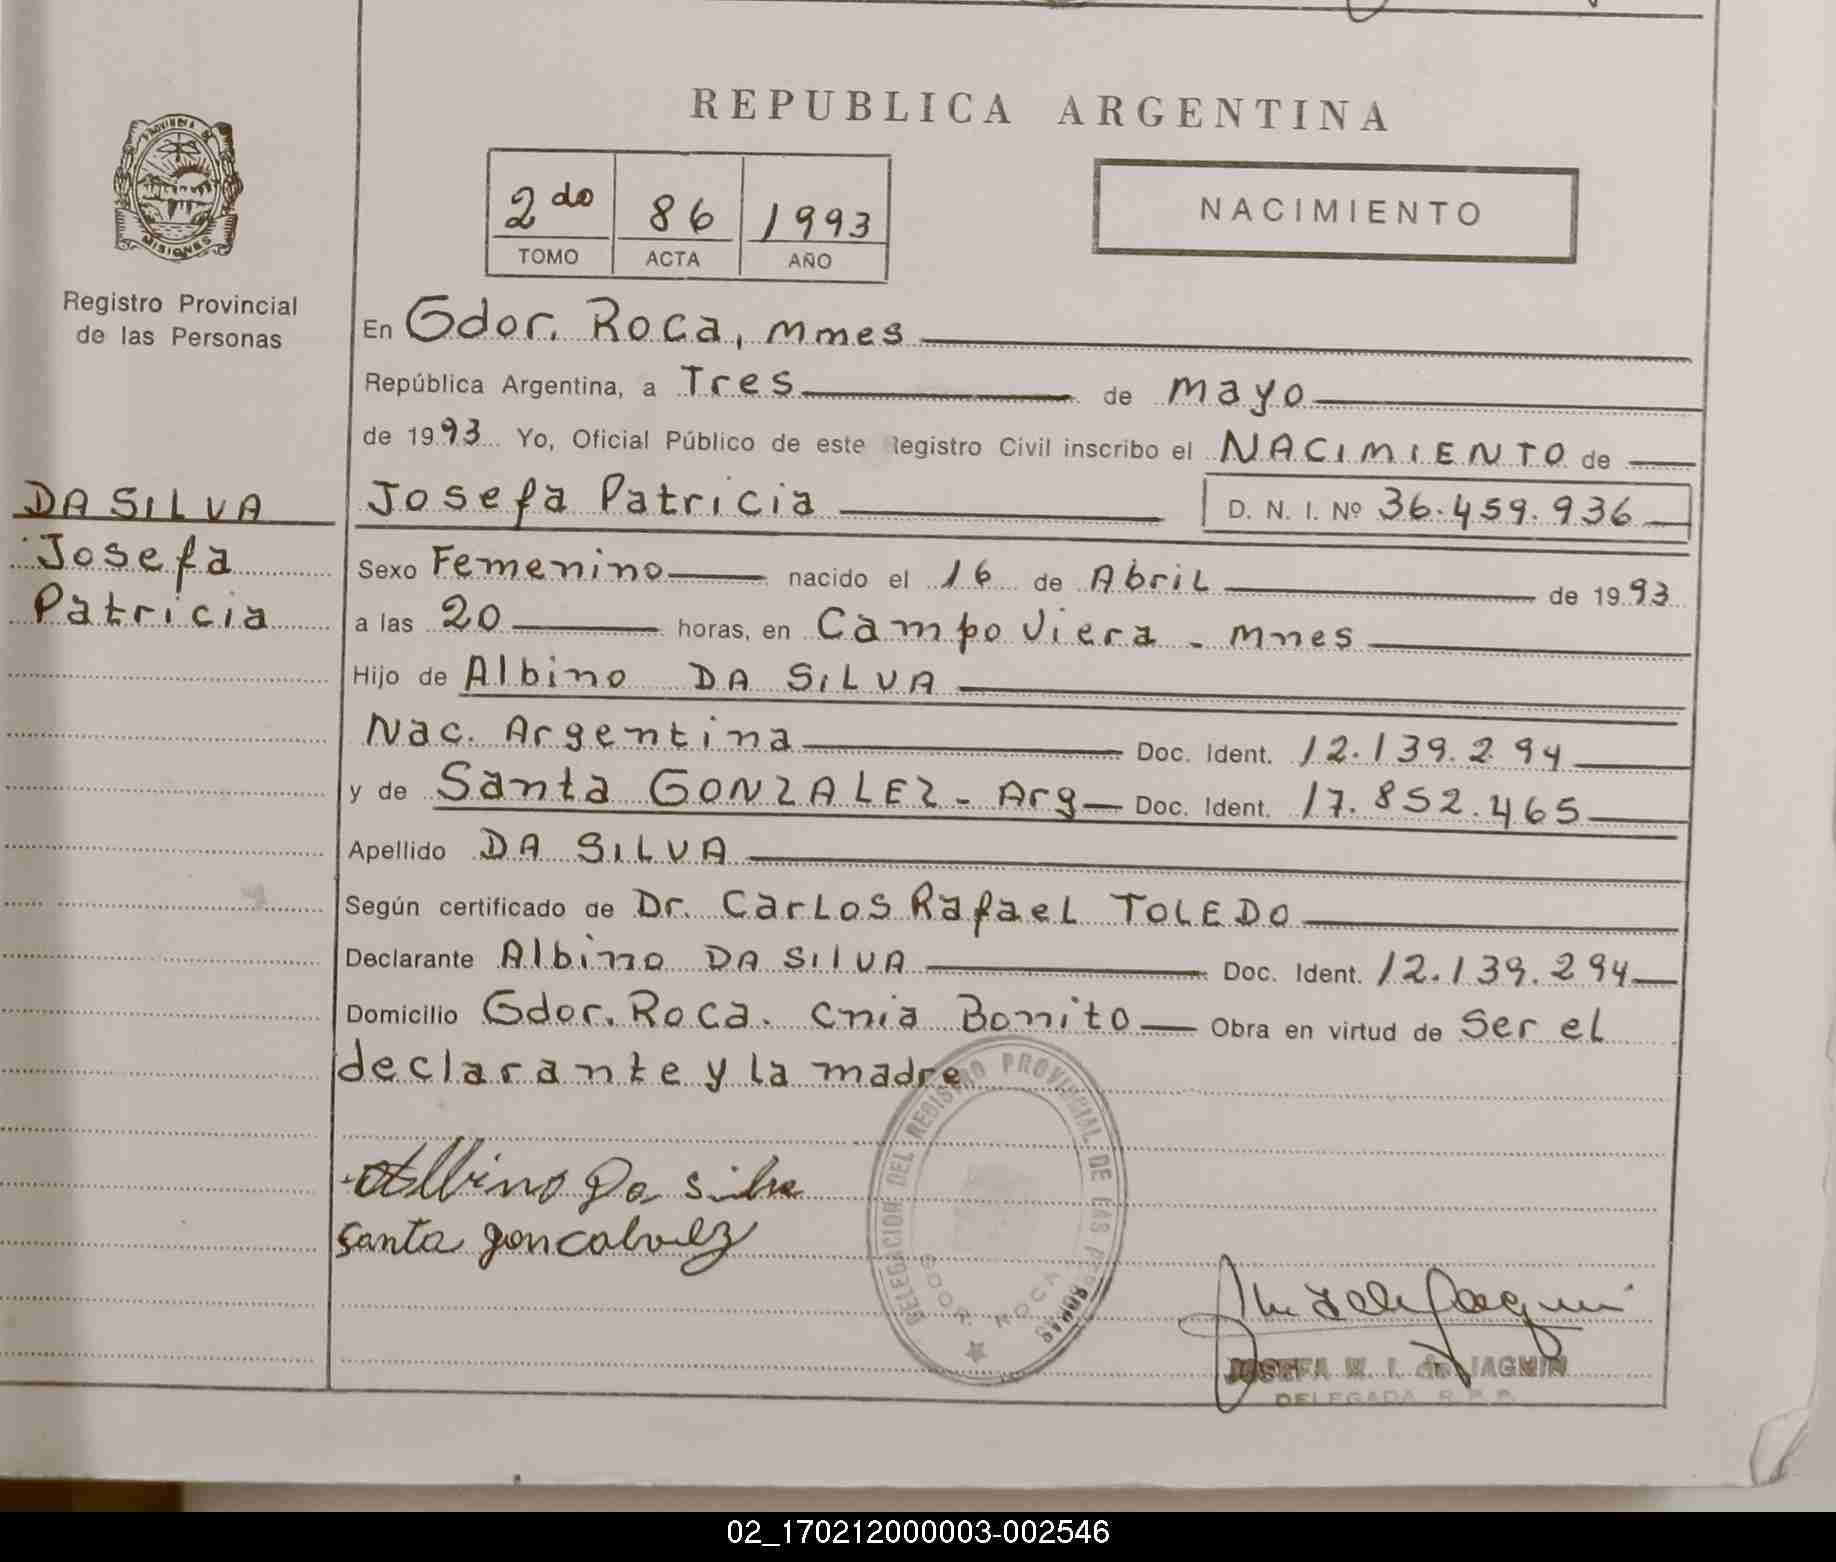 REPUBLICA ARGENTINA
PROVINCIA DE
MISIONES
Registro Provincial
de las Personas
2do 86 1993
TOMO ACTA AÑO
NACIMIENTO
En Gdor. Roca, Mmes
República Argentina, a Tres de mayo
de 1993 Yo, Oficial Público de este Registro Civil inscribo el NACIMIENTO de
DA SILVA
Josefa
Patricia
Josefa Patricia D. N. I. Nº 36.459.936
Sexo Femenino nacido el 16 de Abril de 1993
a las 20 horas, en Campo Viera - Mnes
Hijo de Albino DA SILVA
Nac. Argentina Doc. Ident. 12.139.294
y de Santa GONZALEZ - Arg Doc. Ident. 17.852.465
Apellido DA SILVA
Según certificado de Dr. Carlos Rafael TOLEDO
Declarante Albino DA SILVA Doc. Ident. 12.139.294
Domicilio Gdor. Roca. Cnia Bonito Obra en virtud de Ser el
declarante y la madre
DELEGACION DEL REGISTRO PROVINCIAL DE LAS PERSONAS
GDOR. ROCA
Albino Da Silva
Santa goncalvez
JOSEFA M. I. de JAGMIN
DELEGADA R. P. P.
02_170212000003-002546